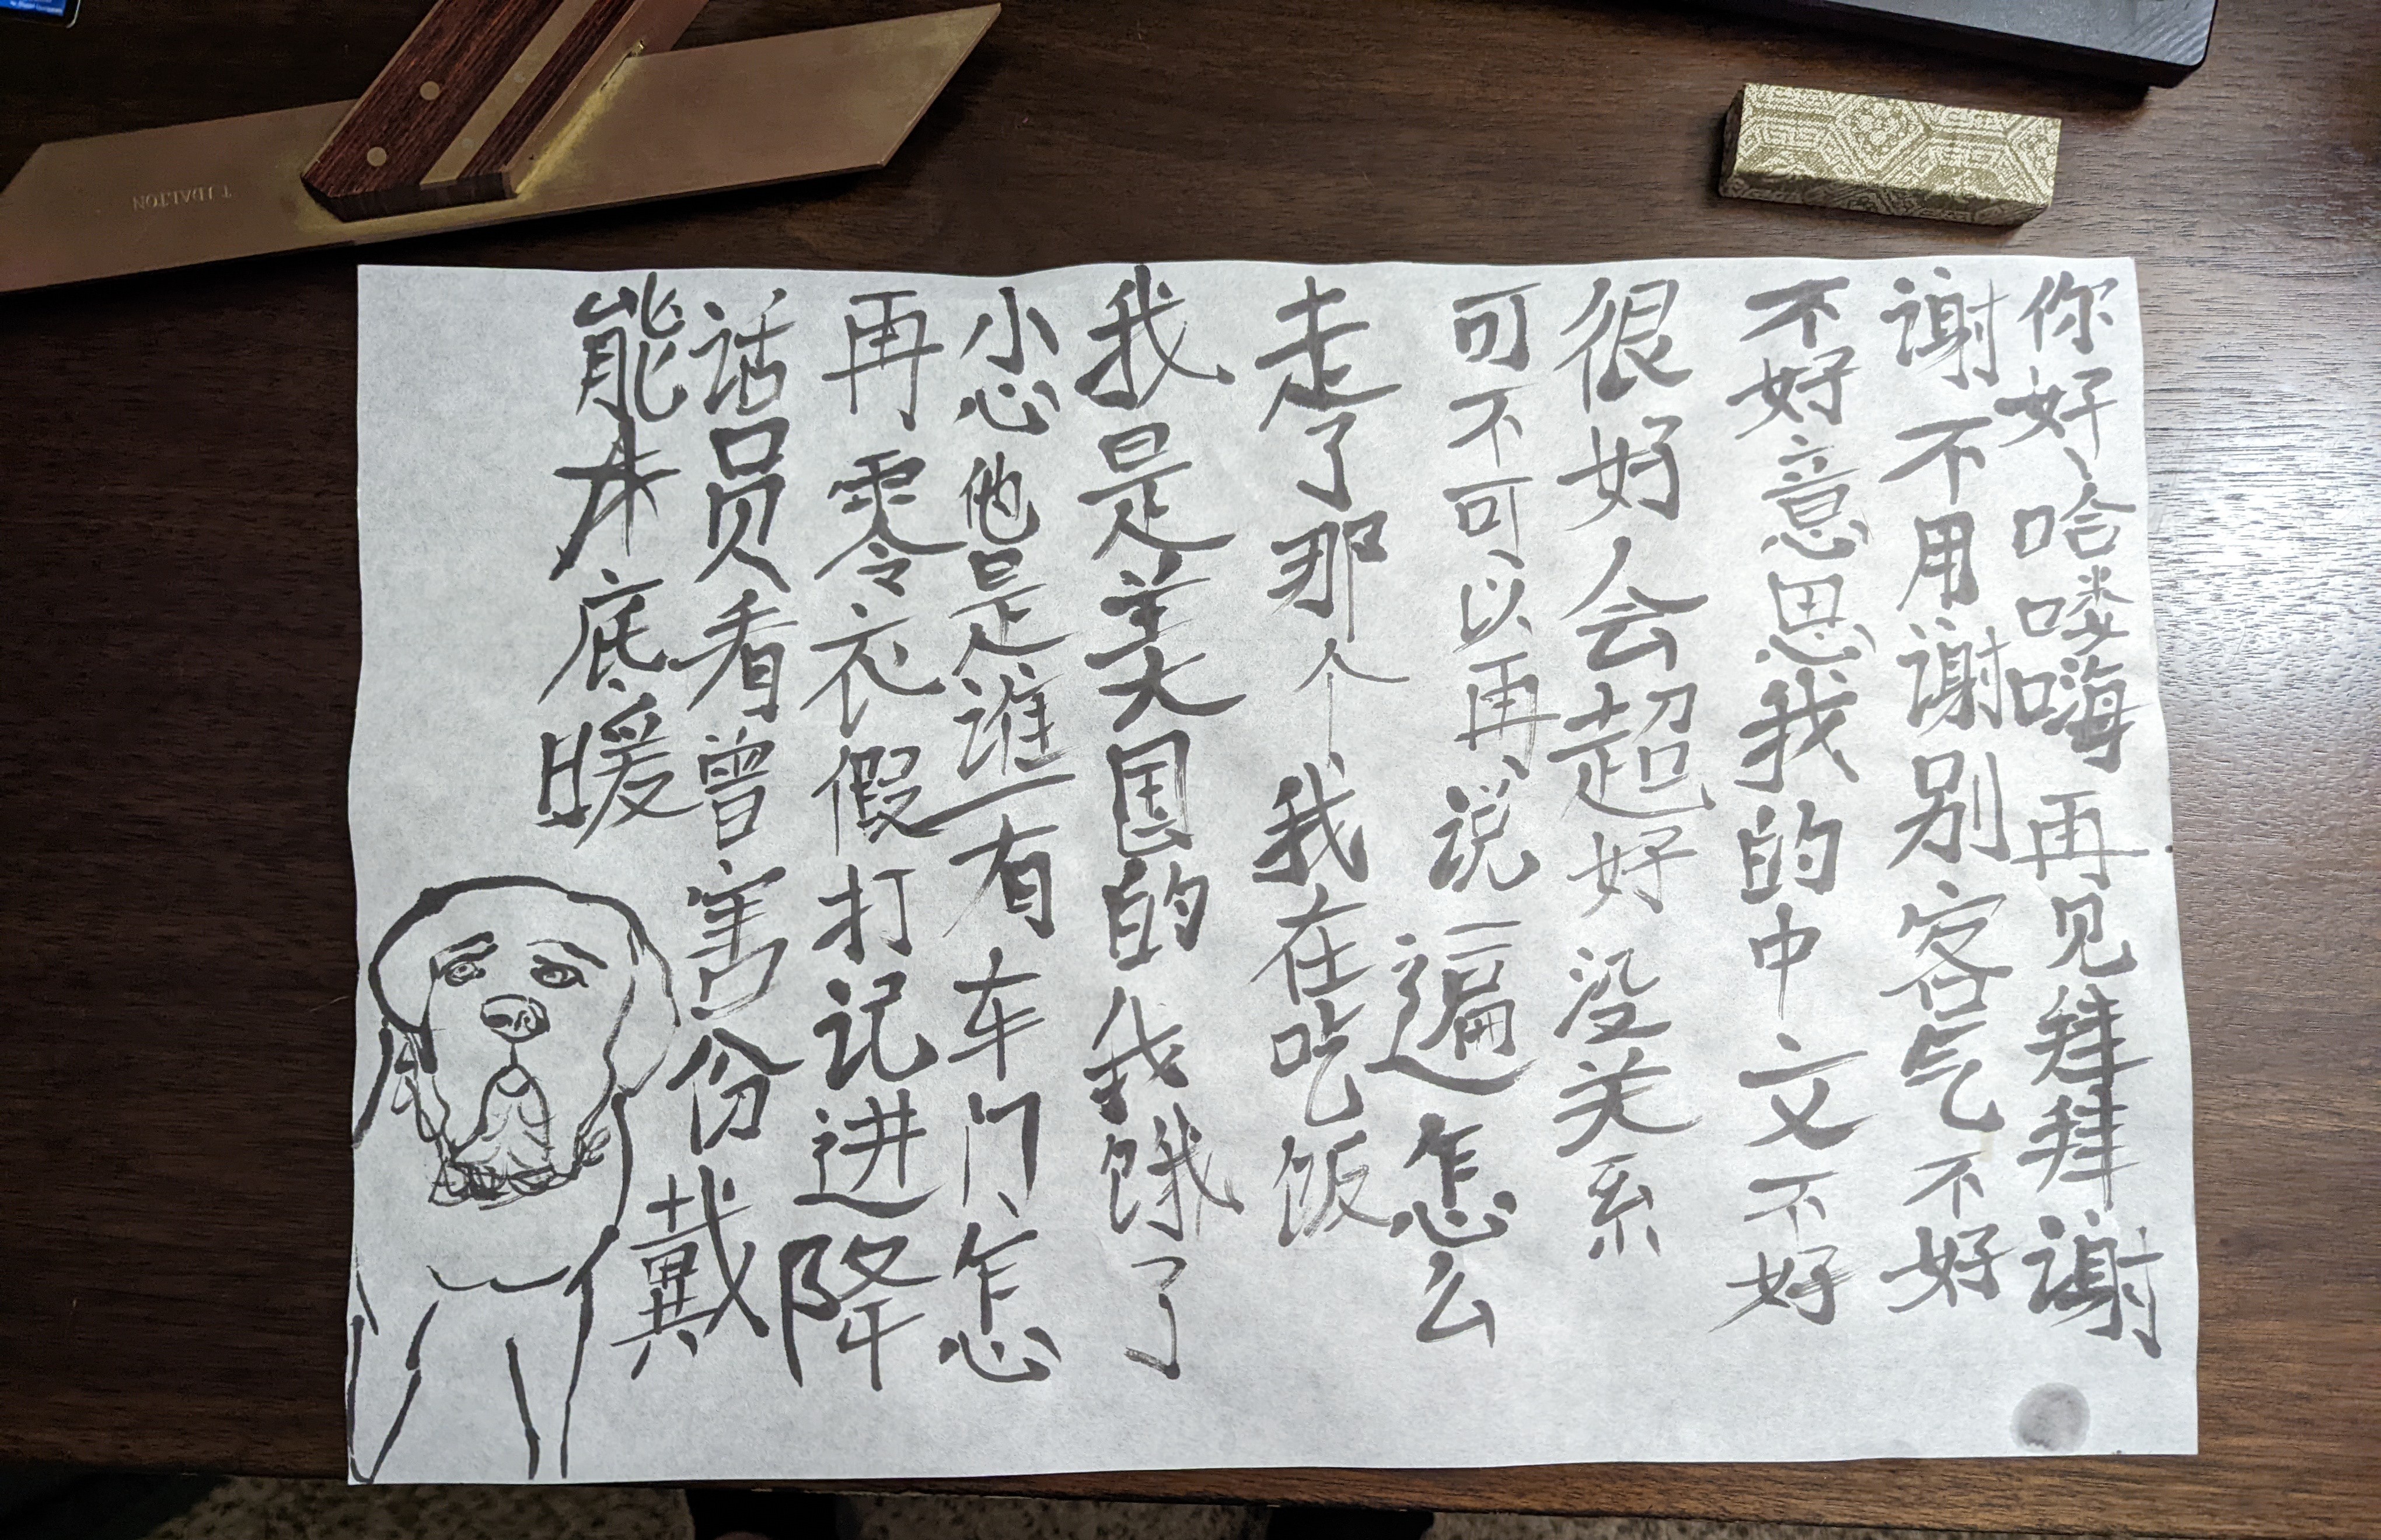 你好、哈喽嗨再见拜拜谢
谢不用谢别客气不好
不好意思我的中文不好
很好会超好没关系
可不可以再说一遍怎么
走了那个我在吃饭
我是美国的我饿了
小心他是谁一有车门怎
再零衣假打记进降
话员看曾害份戴
能本底暖
TJ DALTON